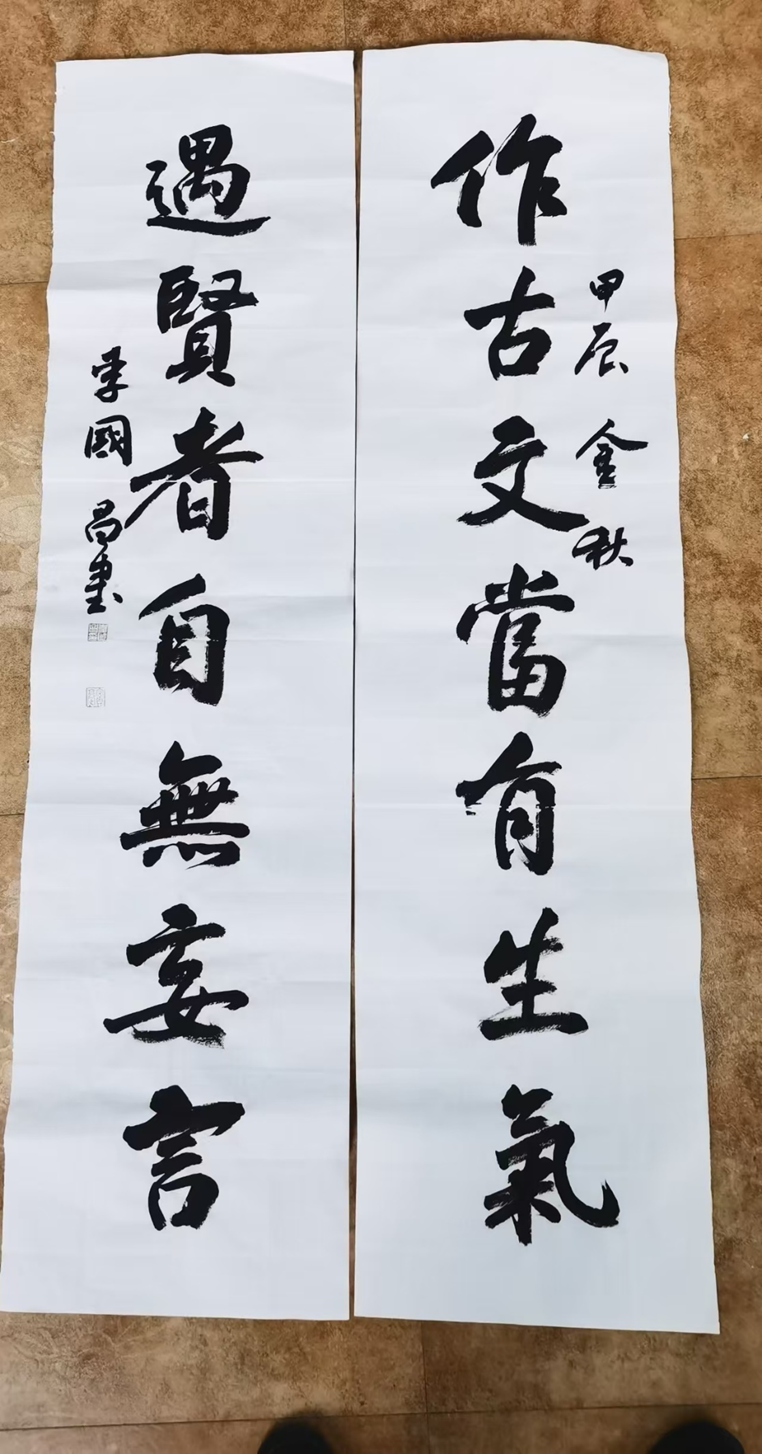 作古文當有生氣
甲辰金秋
遇賢者自無妄言
李國昌書